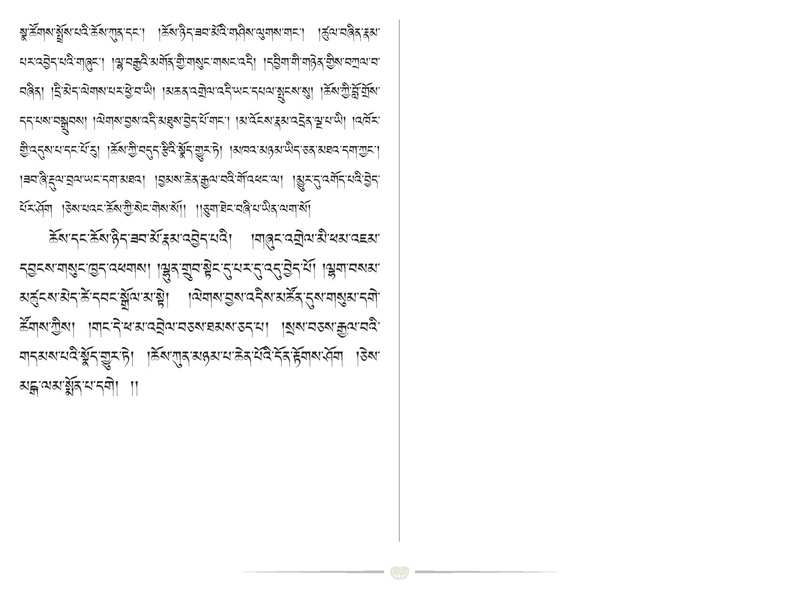 སྣ་ཚོགས་སྤྲོས་པའི་ཆོས་ཀུན་དང་། །ཆོས་ཉིད་ཟབ་མོའི་གཤིས་ལུགས་གང་། །ཚུལ་བཞིན་རྣམ་
པར་འབྱེད་པའི་གཞུང་། །ལྷ་བརྒྱའི་མགོན་གྱི་གསུང་གསང་འདི། །དབྱིག་གི་གཉེན་གྱིས་བཀྲལ་བ་
བཞིན། །དྲི་མེད་ལེགས་པར་ཕྱེ་བ་ཡི། །མཆན་འགྲེལ་འདི་ཡང་དཔལ་སྤུངས་སུ། །ཆོས་ཀྱི་བློ་གྲོས་
དད་པས་བསྒྲུབས། །ལེགས་བྱས་འདི་མཐུས་བྱེད་པོ་གང་། །མ་འོངས་རྣམ་འདྲེན་ལྔ་པ་ཡི། །འཁོར་
གྱི་འདུས་པ་དང་པོ་རུ། །ཆོས་ཀྱི་བདུད་རྩིའི་སྣོད་གྱུར་ཏེ། །མཁའ་མཉམ་ཡིད་ཅན་མཐའ་དག་ཀྱང་།
།ཟབ་ཞི་རྡུལ་བྲལ་ཡང་དག་མཐའ། །བྱམས་ཆེན་རྒྱལ་བའི་གོ་འཕང་ལ། །མྱུར་དུ་འགོད་པའི་བྱེད་
པོར་ཤོག །ཅེས་པའང་ཆོས་ཀྱི་སེང་གེས་སོ།། །།ཅུག་ཐེང་བཞི་པ་ཡིན་ལགས་སོ།
ཆོས་དང་ཆོས་ཉིད་ཟབ་མོ་རྣམ་འབྱེད་པའི། །གཞུང་འགྲེལ་མི་ཕམ་འཇམ་
དབྱངས་གསུང་ཁྱད་འཕགས། །ལྷུན་གྲུབ་སྟེང་དུ་པར་དུ་འདུ་བྱེད་པོ། །ལྷག་བསམ་
མཚུངས་མེད་ཚེ་དབང་སྒྲོལ་མ་སྟེ། །ལེགས་བྱས་འདིས་མཚོན་དུས་གསུམ་དགེ་
ཚོགས་ཀྱིས། །གང་དེ་ཕ་མ་འབྲེལ་བཅས་ཐམས་ཅད་པ། །སྲས་བཅས་རྒྱལ་བའི་
གདམས་པའི་སྣོད་གྱུར་ཏེ། །ཆོས་ཀུན་མཉམ་པ་ཆེན་པོའི་དོན་རྟོགས་ཤོག །ཅེས་
མངྒ་ལམ་སྨོན་པ་དགེ། །།